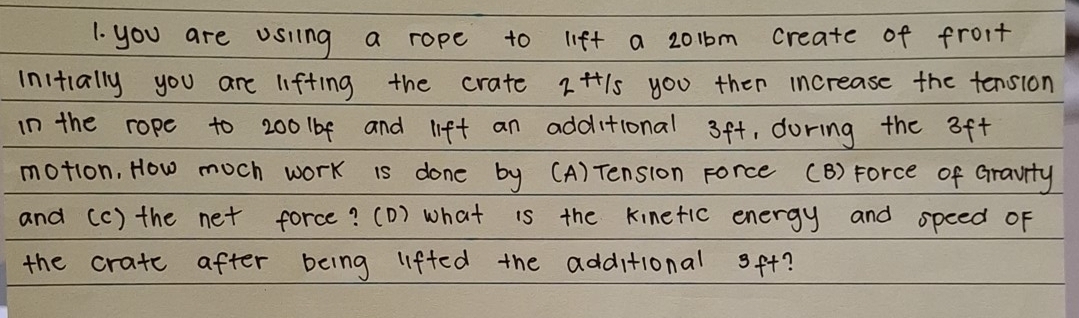 1. you are usiing a rope to lift a 20lbm create of froit
initially you are lifting the crate 2 ft/s you then increase the tension
in the rope to 200 lbf and lift an additional 3ft, during the 3ft
motion. How much work is done by (A) Tension Force (B) Force of Gravity
and (c) the net force? (D) what is the kinetic energy and speed of
the crate after being lifted the additional 3 ft?